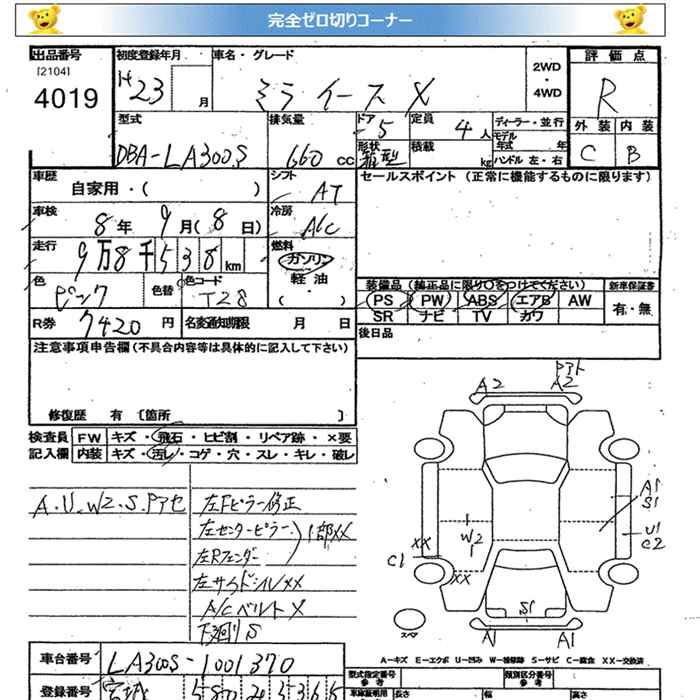 完全ゼロ切りコーナー
出品番号 初度登録年月 車名・グレード 2WD・4WD 評価点
[2104]
4019 H23 月 ミライース X R
型式 排気量 ドア 5 定員 4人 ディーラー・並行 外装 内装
DBA-LA300S 660cc 形状 箱型 積載 kg モデル年式 年 ハンドル 左・右 C B
車歴 自家用・( ) シフト AT セールスポイント (正常に機能するものに限ります)
車検 8年 9月(8日) 冷房 A/C
走行 9万8千538km 燃料 ガソリン・軽油・( )
色 ピンク 色替 色コード T28 装備品 (純正品に限り○をつけてください) 新車保証書
PS PW ABS エアB AW 有・無
R券 7420円 名変通知期限 月 日 SR ナビ TV カワ
注意事項申告欄(不具合内容等は具体的に記入して下さい) 後日品
修復歴 有 [箇所 ]
検査員 FW キズ・飛石・ヒビ割・リペア跡・×要
記入欄 内装 キズ・汚レ・コゲ・穴・スレ・キレ・破レ
A2 A2
A.U.W2.S.Pアセ 左Fピラー修正
左センターピラー 1部XX
左Rフェンダー
左サイドシルXX
A/Cベルト X
下廻りS
A1
S1
U1
C2
W2
XX
C1
XX
S1
スペア
A1 A1
A-キズ E-エクボ U-凹み W-補修跡 S-サビ C-腐食 XX-交換済
車台番号 LA300S-1001370 型式指定番号 類別区分番号
登録番号 宮城 長さ 幅 高さ